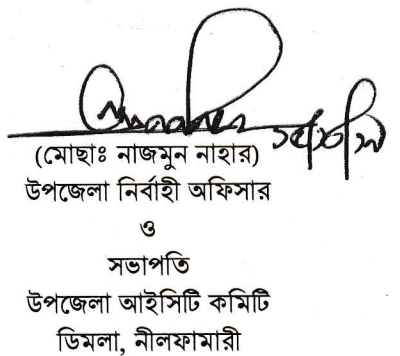 (মোছাঃ নাজমুন নাহার)
উপজেলা নির্বাহী অফিসার
ও
সভাপতি
উপজেলা আইসিটি কমিটি
ডিমলা, নীলফামারী